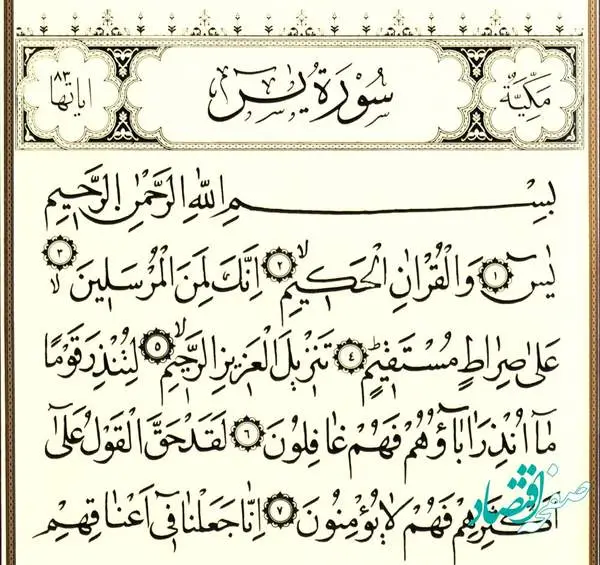 مَكِّيَّةٌ
سُورَةُ يٰسٓ
اٰيَاتُهَا ٨٣
بِسْمِ اللّٰهِ الرَّحْمٰنِ الرَّحِيمِ
يٰسٓ ﴿١﴾ وَالْقُرْاٰنِ الْحَكِيمِۙ ﴿٢﴾ اِنَّكَ لَمِنَ الْمُرْسَلِينَۙ ﴿٣﴾
عَلٰى صِرَاطٍ مُسْتَقِيمٍ ﴿٤﴾ تَنْزِيلَ الْعَزِيزِ الرَّحِيمِۙ ﴿٥﴾ لِتُنْذِرَ قَوْمًا
مَٓا اُنْذِرَ اٰبَٓاؤُ۬هُمْ فَهُمْ غَافِلُونَ ﴿٦﴾ لَقَدْ حَقَّ الْقَوْلُ عَلٰٓى
اَكْثَرِهِمْ فَهُمْ لَا يُؤْمِنُونَ ﴿٧﴾ اِنَّا جَعَلْنَا فِٓى اَعْنَاقِهِمْ
صفحه اقتصاد